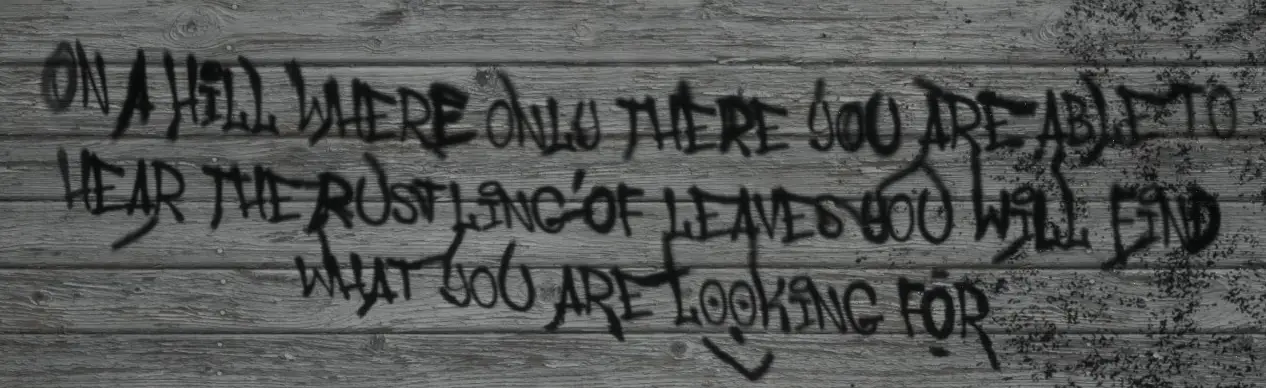 ON A HiLL WHERE ONLY THERE YOU ARE ABLE TO
HEAR THE RUSTLiNG OF LEAVES YOU WiLL FiND
WHAT YOU ARE LOOKiNG FOR